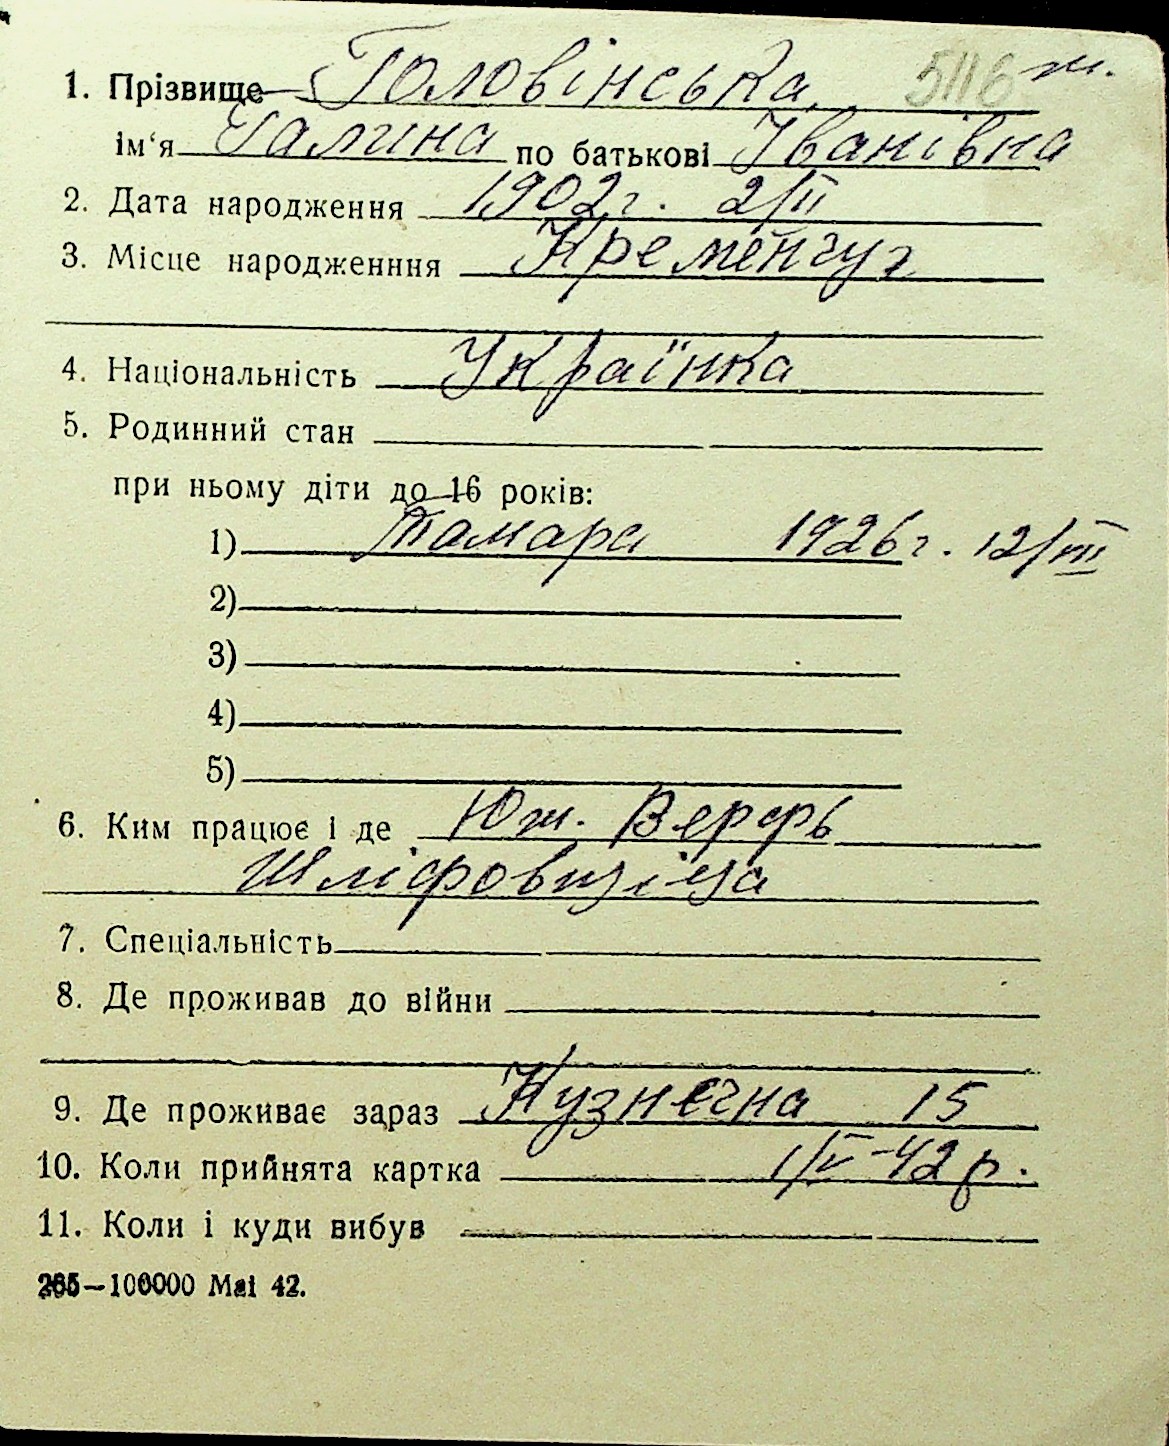 1. Прізвище Головінська 5116 ж.
ім‘я Галина по батькові Іванівна
2. Дата народження 1902 г. 2/II
3. Місце народженння Кременчуг
4. Національність Українка
5. Родинний стан
при ньому діти до 16 років:
1) Тамара 1926 г. 12/VIII
2)
3)
4)
5)
6. Ким працює і де Юж. Верфь
7. Спеціальність
8. Де проживав до війни
9. Де проживає зараз Кузнечна 15
10. Коли прийнята картка 1/V-42 р.
11. Коли і куди вибув
265—100000 Маі 42.